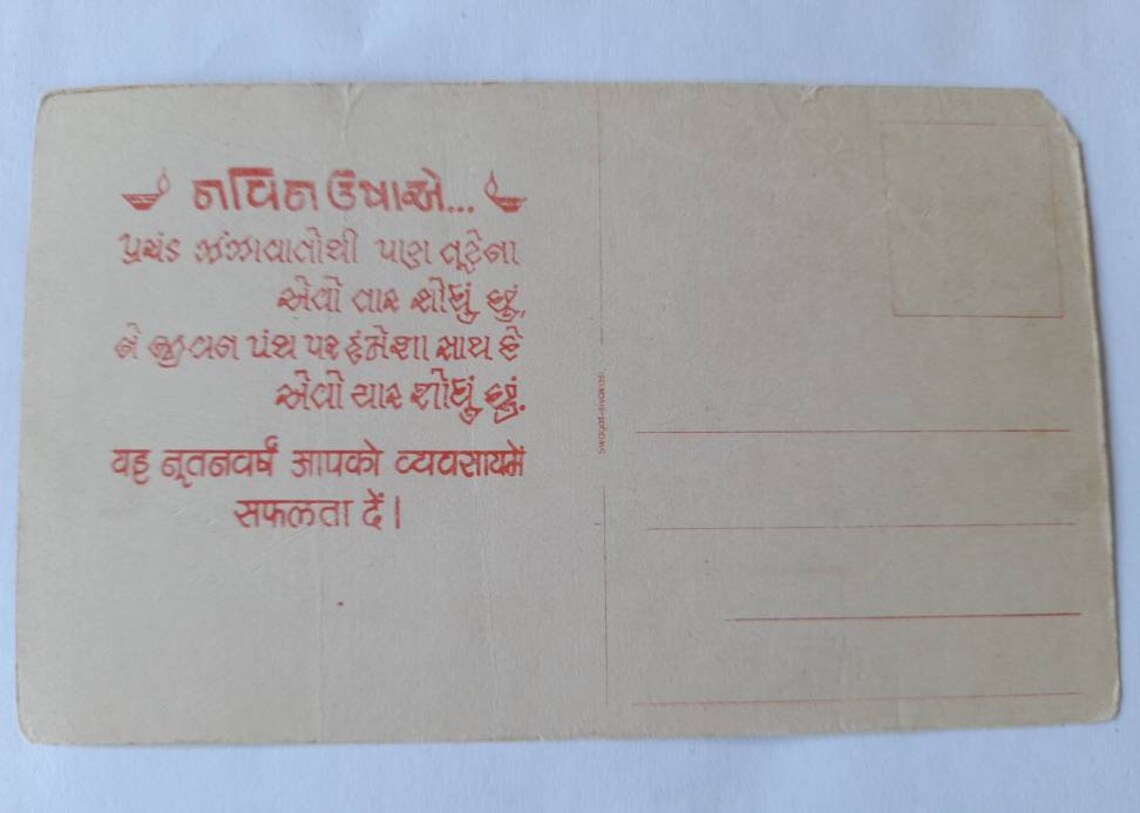 નવિન ઉષાએ...
પ્રચંડ ઝંઝાવાતોથી પણ તૂટેના
એવો તાર શોધું છું,
ને જીવન પંથ પર હંમેશા સાથ દે
એવો યાર શોધું છું.
यह नूतनवर्ष आपको व्यवसायमें
सफलता दें।